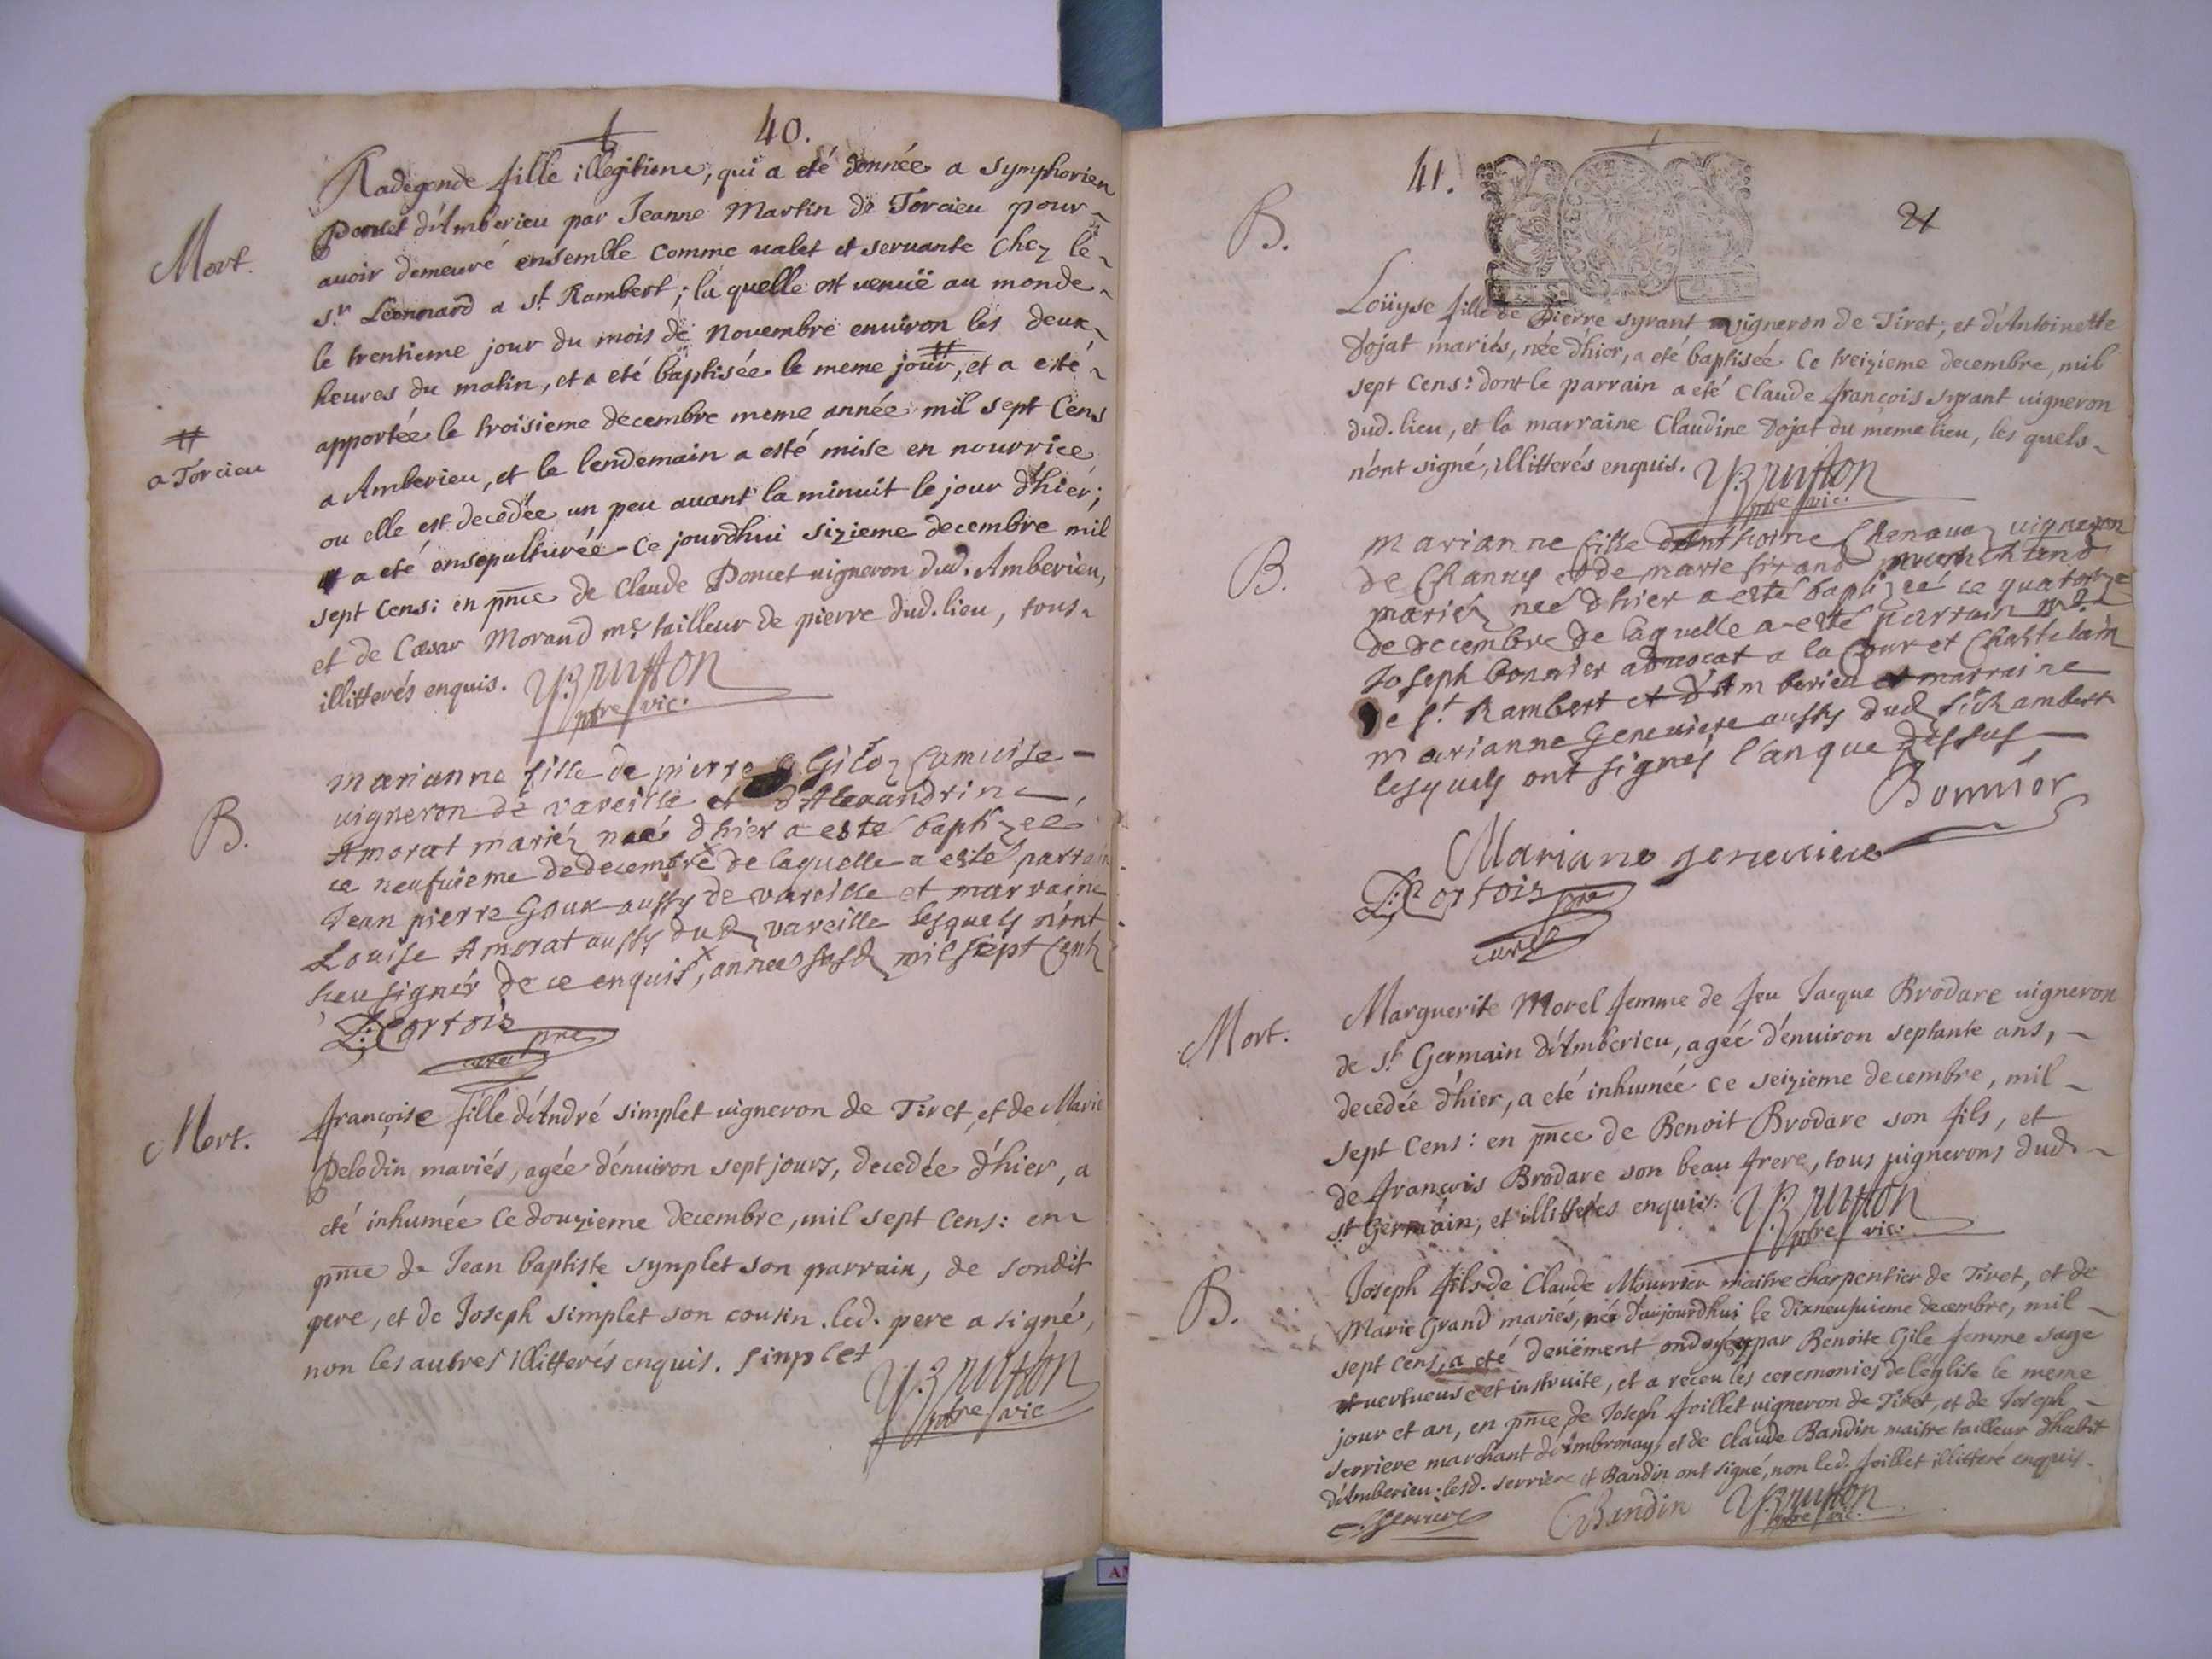 40.
Mort.
Radegonde fille illegitime, qui a eté donnée a Symphorien
Poncet d'Amberieu par Jeanne Martin de Torcieu pour
auoir demeuré ensemble comme ualet et seruante chez le
sr. Léonnard a st. Rambert; la quelle est uenuë au monde
le trentieme jour du mois de nouembre enuiron les deux
heures du matin, et a eté baptisée le meme jour, # et a esté
# a Torcieu
apportée le troisieme decembre meme année mil sept cens
a Amberieu, et le lendemain a esté mise en nourrice
ou elle est decedée un peu auant la minuit le jour d'hier;
et a eté ensepulturée ce jourdhui sizieme decembre mil
sept cens: en pnce de Claude Poncet uigneron dud. Amberieu,
et de Cæsar Morand me. tailleur de pierre dud. lieu, tous
illitterés enquis.
ptre vic.
B.
marianne fille de pierre Giloz Camuise
uigneron de vareille et d'Alexandrine
Amorat mariéz neé dhier a esté baptizeé
ce neufuieme de decembre de laquelle a esté parrain
Jean pierre Goux aussy de vareille et marraine
Louise Amorat aussy dud vareille lesquels n'ont
sceu signér de ce enquis, anneé susd mil sept Cent
Cortois pre
curé
Mort.
françoise fille d'André simplet uigneron de Tiret, et de Marie
Pelodin mariés, agée d'enuiron sept jours, decedée d'hier, a
eté inhumée ce douzieme decembre, mil sept cens: en
pnce de Jean baptiste synplet son parrain, de sondit
pere, et de Joseph simplet son cousin. led. pere a signé,
non les autres illitterés enquis. sinplet
ptre vic
41.
21
B.
Loüyse fille de Pierre syrant uigneron de Tiret, et d'Antoinette
Dojat mariés, née d'hier, a eté baptisée ce treizieme decembre, mil
sept cens: dont le parrain a eté Claude françois syrant uigneron
dud. lieu, et la marraine Claudine Dojat du meme lieu, les quels
n'ont signé, illitterés enquis.
ptre vic.
B.
marianne fille d'Anthoine Chenauaz uigneron
de Channy et de marie
mariéz neé dhier a esté baptizeé ce quatorze
de decembre de laquelle a esté parrain
Joseph bonnier aduocat a la Cour et Chastelain
de st. Rambert et d'Amberieu et marraine
marianne Geneuiere aussy dud st Rambert
lesquels ont signés l'an que dessus
Bonnier
Mariane genevieve
Cortois pre
curé
Mort.
Marguerite Morel femme de feu Jacque Brodare uigneron
de st. Germain d'Amberieu, agée d'enuiron septante ans,
decedée d'hier, a eté inhumée ce seizieme decembre, mil
sept cens: en pnce de Benoit Brodare son fils, et
de françois Brodare son beau frere, tous uignerons dud.
st Germain, et illitterés enquis.
ptre vic:
B.
Joseph fils de Claude Mourrier maitre charpentier de Tiret, et de
Marie Grand mariés, né d'aujourdhui le dixneufuieme decembre, mil
sept cens, a eté deuëment ondoyé par Benoite Gile femme sage
et uertueuse et instruite, et a receu les ceremonies de l'eglise le meme
jour et an, en pnce de Joseph foillet uigneron de Tiret, et de Joseph
serriere marchant d'Ambronay, et de Claude Bandin maitre tailleur d'habit
d'Amberieu: lesd. serriere et Bandin ont signé, non led. foillet illitteré enquis.
Bandin
ptre vic.